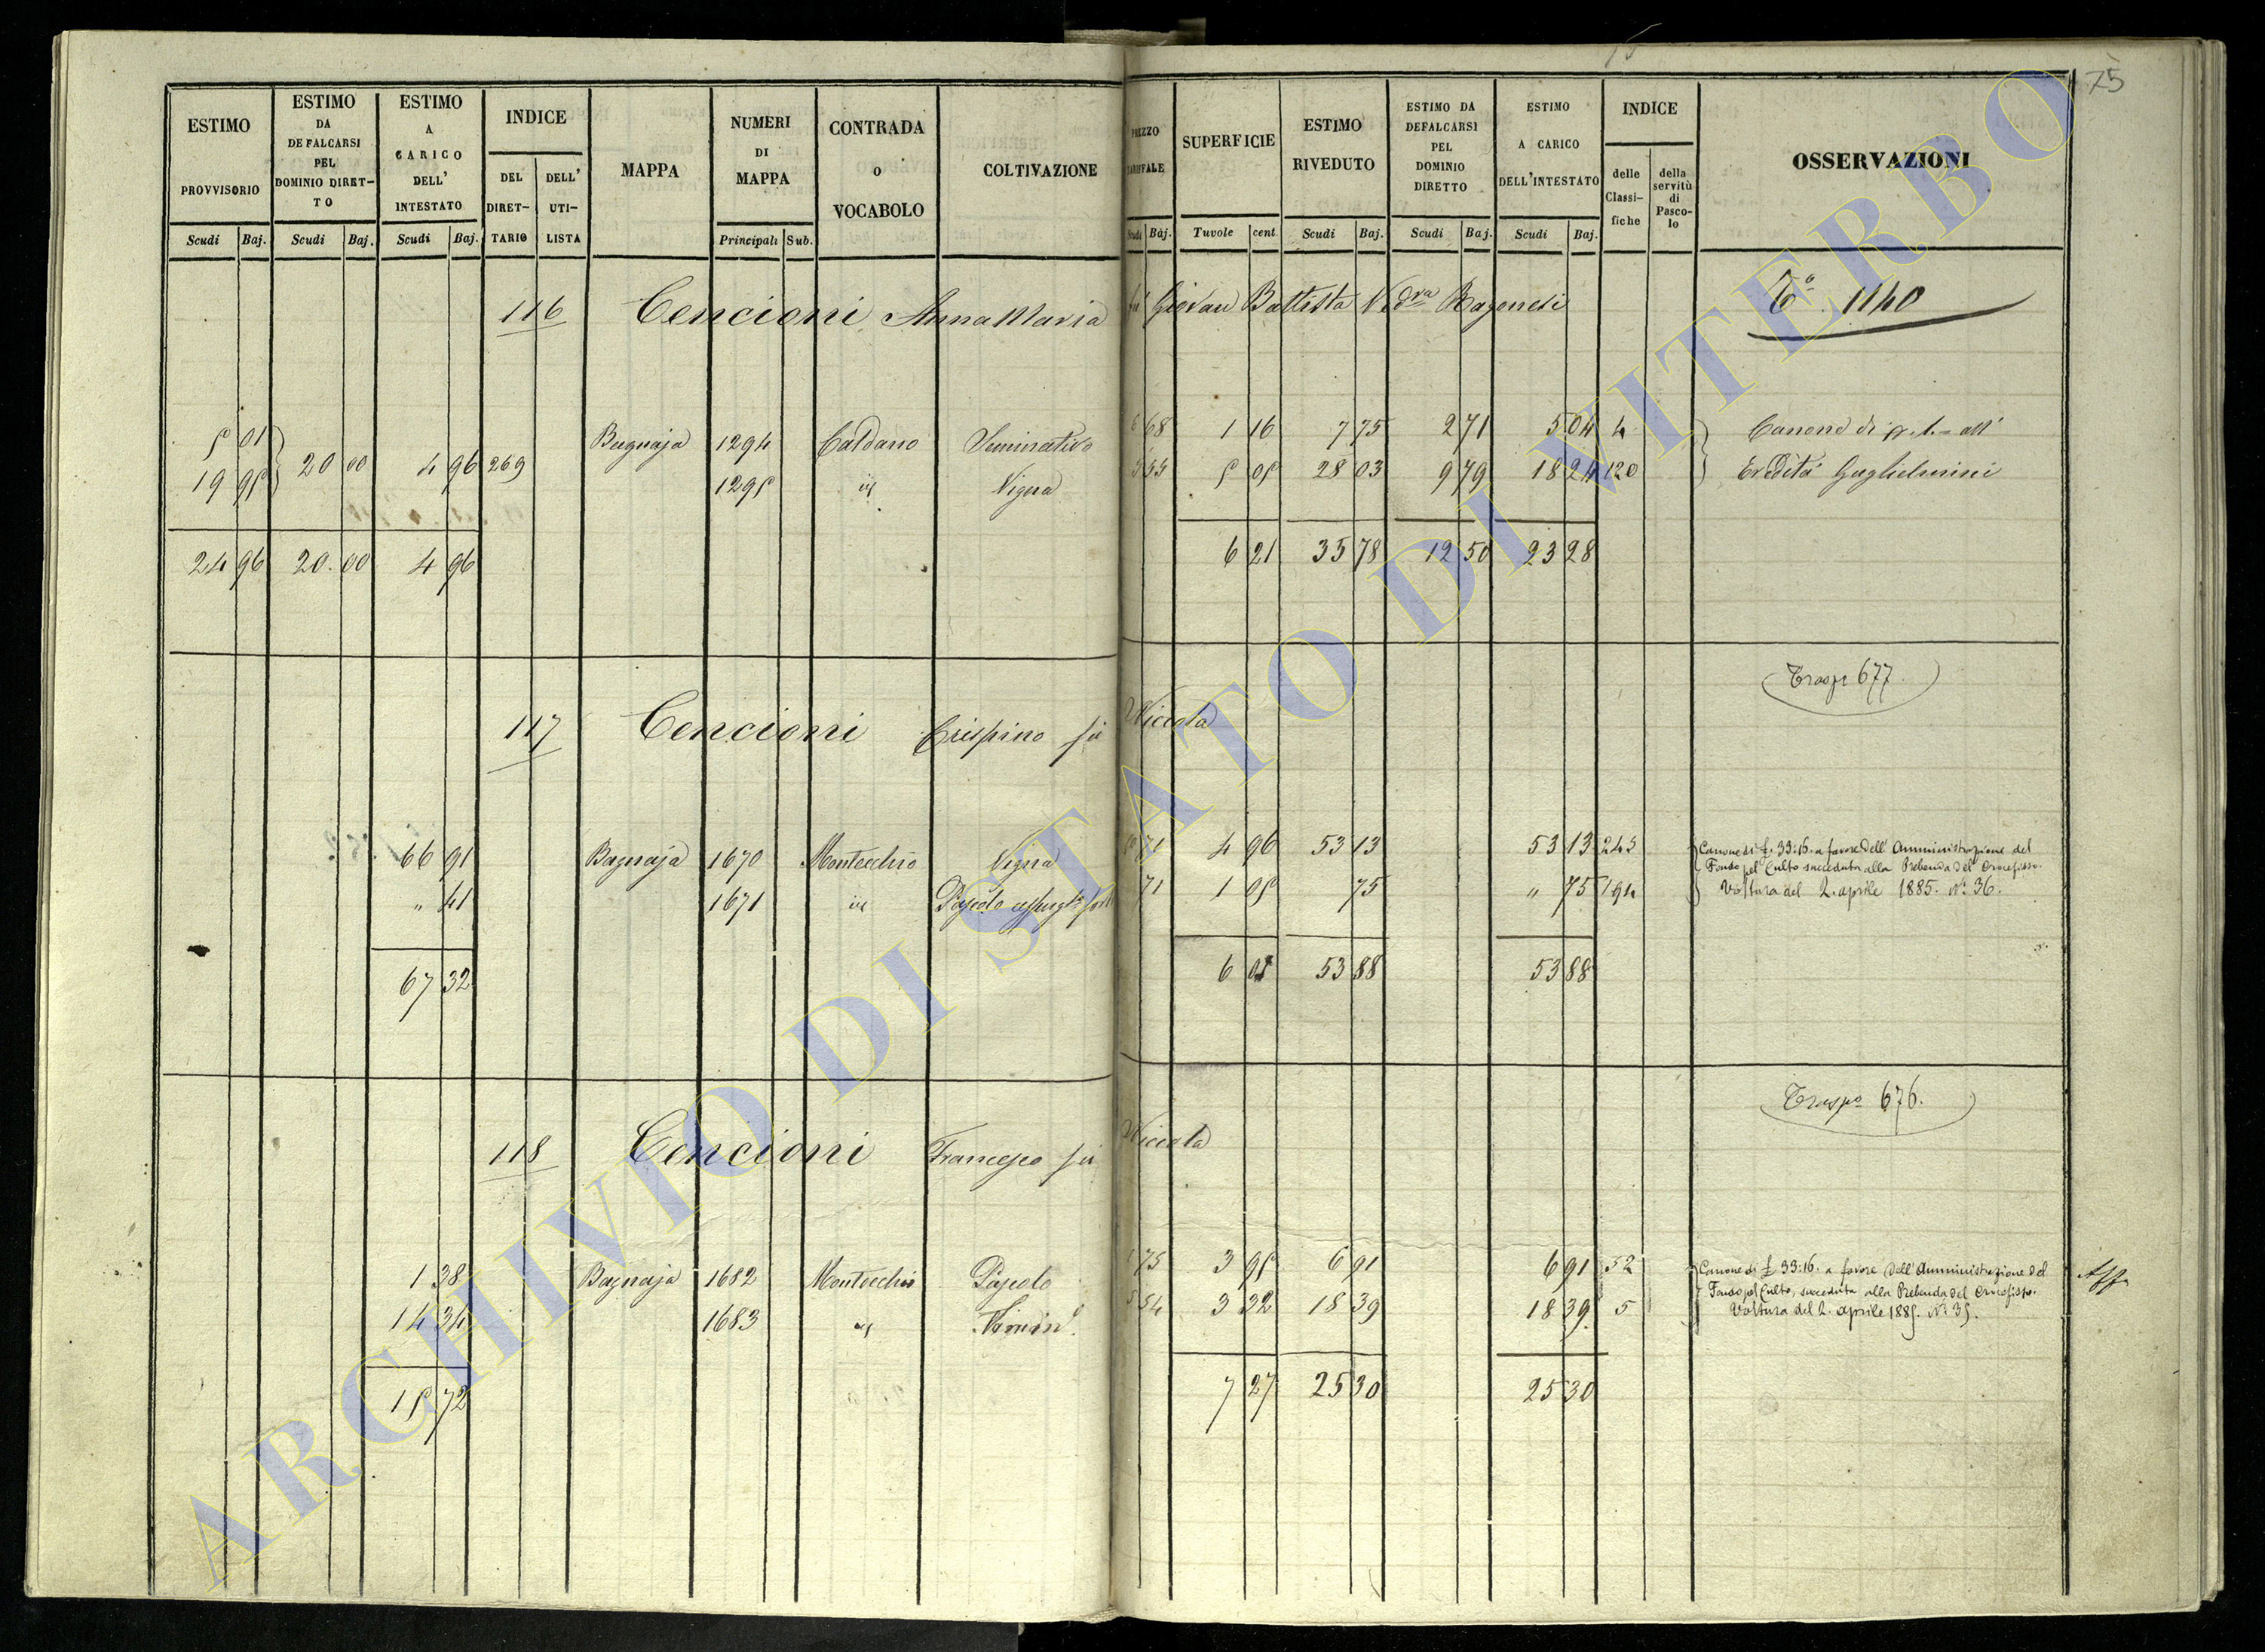 75
ESTIMO PROVVISORIO
ESTIMO DA DEFALCARSI PEL DOMINIO DIRET-TO
ESTIMO A CARICO DELL' INTESTATO
INDICE
DEL DIRET-TARIO
DELL' UTI-LISTA
MAPPA
NUMERI DI MAPPA
CONTRADA O VOCABOLO
COLTIVAZIONE
PREZZO TARIFFALE
SUPERFICIE
ESTIMO RIVEDUTO
ESTIMO DA DEFALCARSI PEL DOMINIO DIRETTO
ESTIMO A CARICO DELL'INTESTATO
INDICE
delle Classi-fiche
della servitù di Pasco-lo
OSSERVAZIONI
Scudi Baj. Scudi Baj. Scudi Baj. Principali Sub. Scudi Baj. Tavole cent Scudi Baj. Scudi Baj. Scudi Baj.
116 Cencioni Anna Maria fu Giovan Battista Ved.va Ragonesi To. 1140
5 01 Bagnaja 1294 Caldano Seminativo 6 68 1 16 7 75 2 71 5 04 4 Canone di all'
19 95 20 00 4 96 269 1295 id Vigna 5 55 5 05 28 03 9 79 18 24 120 Eredità Guglielmini
24 96 20.00 4 96 6 21 35 78 12 50 23 28
Trasp 677
117 Cencioni Crispino fu Nicola
66 91 Bagnaja 1670 Montecchio Vigna 10 71 4 96 53 13 53 13 243 Canone di £. 33:16. a favore dell'Amministrazione del
Fondo pel Culto succeduta alla Prebenda del Crocefisso.
" 41 1671 id Pascolo 71 1 05 75 " 75 194 Voltura del 2. aprile 1885. N. 36.
67 32 6 01 53 88 53 88
Trasp.o 676.
118 Cencioni Francesco fu Nicola
1 38 Bagnaja 1682 Montecchio Pascolo 1 75 3 95 6 91 6 91 52 Canone di £ 33:16. a favore dell'Amministrazione del
Fondo pel Culto, succeduta alla Prebenda del Crocefisso.
14 34 1683 id Semin.o 5 54 3 32 18 39 18 39 5 Voltura del 2. aprile 1885. N. 35.
15 72 7 27 25 30 25 30
ARCHIVIO DI STATO DI VITERBO